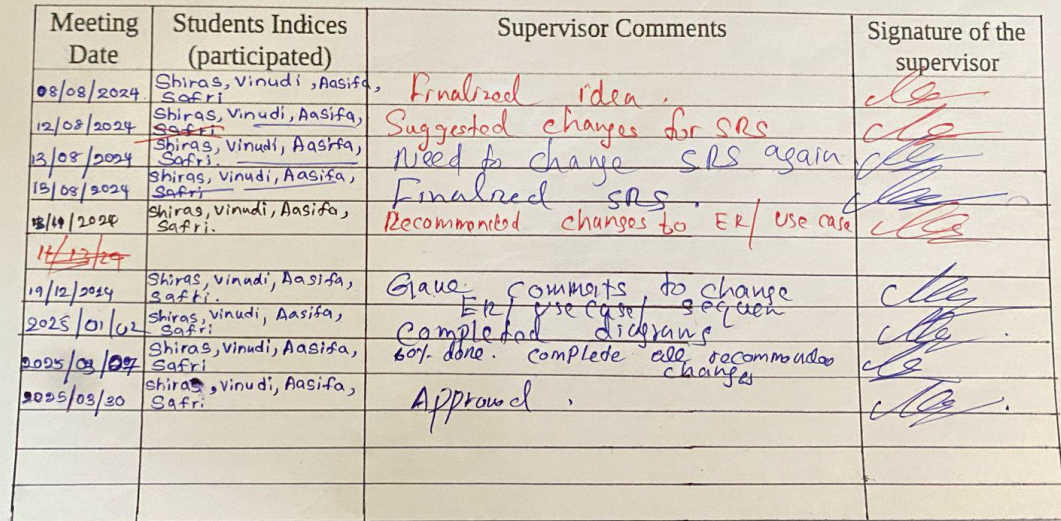 Meeting Date
Students Indices (participated)
Supervisor Comments
Signature of the supervisor
08/08/2024
Shiras, Vinudi, Aasifa,
Safri
Finalized idea.
12/08/2024
Shiras, Vinudi, Aasifa,
Safri
Suggested changes for SRS
13/08/2024
Shiras, Vinudi, Aasifa,
Safri.
Need to change SRS again
15/08/2024
Shiras, Vinudi, Aasifa,
Safri
Finalized SRS.
2024
Shiras, Vinudi, Aasifa,
Safri.
changes to ER/ use case
19/12/2014
Shiras, Vinudi, Aasifa,
Safri.
Gave comments to change
ER/ use case/
2025/01/02
Shiras, Vinudi, Aasifa,
Safri
Completed diagrams
2025/03/07
Shiras, Vinudi, Aasifa,
Safri
60% done. complete all
changes
2025/03/30
Shiras, Vinudi, Aasifa,
Safri
Approved.